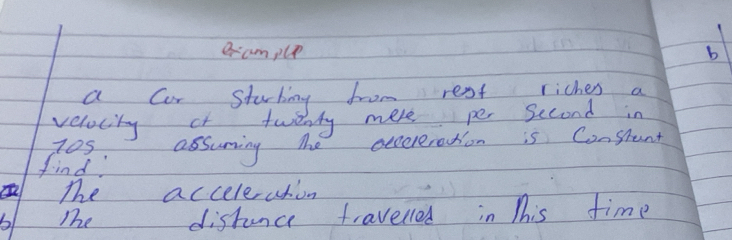 Example
a Car Starting from rest riches a
velocity of twenty mere per second in
70s assuming the acceleration is Constant
find:
a the acceleration
b) the distance travelled in this time
b